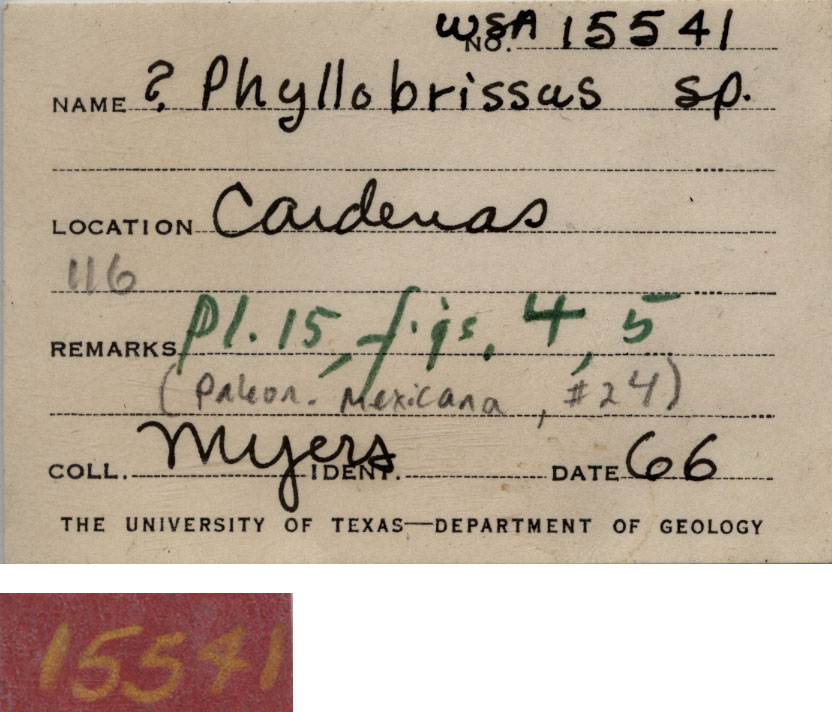 WSA
NO. 15541
NAME ? Phyllobrissus sp.
LOCATION Cardenas
116
REMARKS Pl. 15, figs. 4, 5
(Paleon. Mexicana, #24)
COLL. Myers IDENT. DATE 66
THE UNIVERSITY OF TEXAS—DEPARTMENT OF GEOLOGY
15541